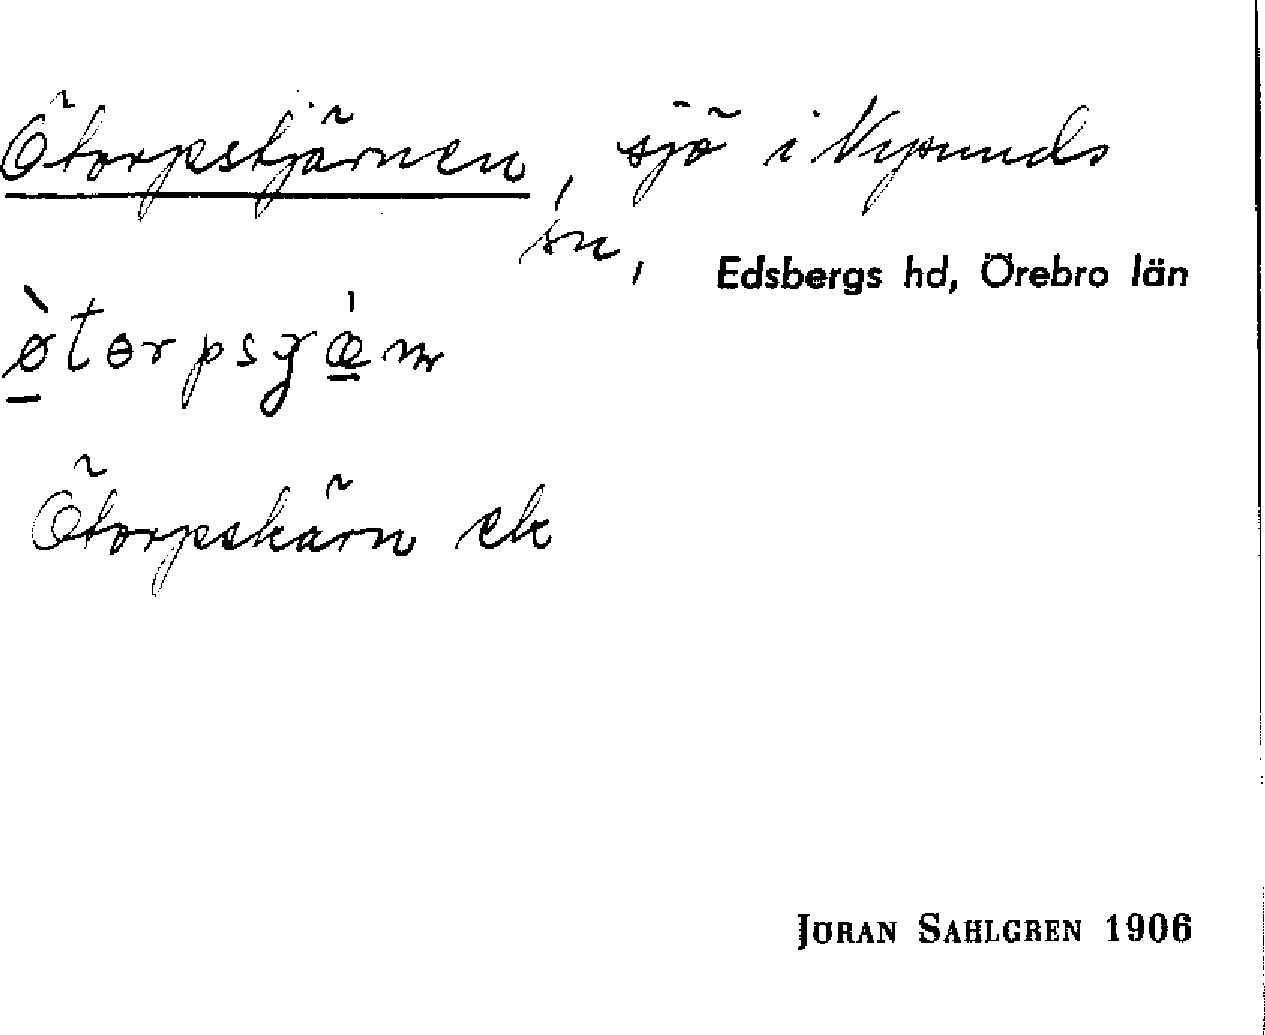 Ötorpstjärnen, sjö i Nysunds
sn, Edsbergs hd, Örebro län
ø̀tɵrpsɣǽn
Ötorpskärn ek
JÖRAN SAHLGREN 1906